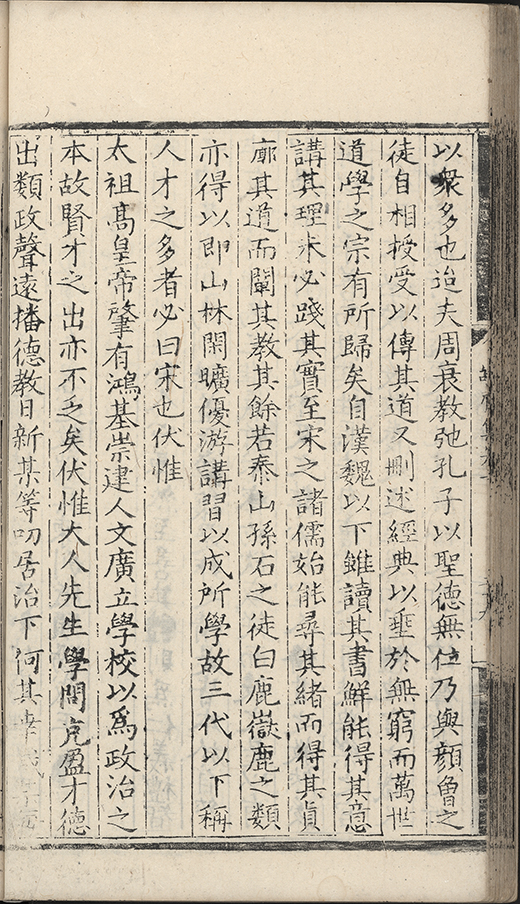 以衆多也迨夫周衰教弛孔子以聖德無位乃與顔曾之
徒自相授受以傳其道又刪述經典以垂於無窮而萬世
道學之宗有所歸矣自漢魏以下雖讀其書鮮能得其意
講其理未必踐其實至宋之諸儒始能尋其緒而得其真
廓其道而闡其教其餘若泰山孫石之徒白鹿嶽鹿之類
亦得以即山林閑曠優游講習以成所學故三代以下稱
人才之多者必曰宋也伏惟
太祖高皇帝肇有鴻基崇建人文廣立學校以爲政治之
本故賢才之出亦不乏矣伏惟大人先生學問充盈才德
出類政聲遠播德教日新某等叨居治下何其幸